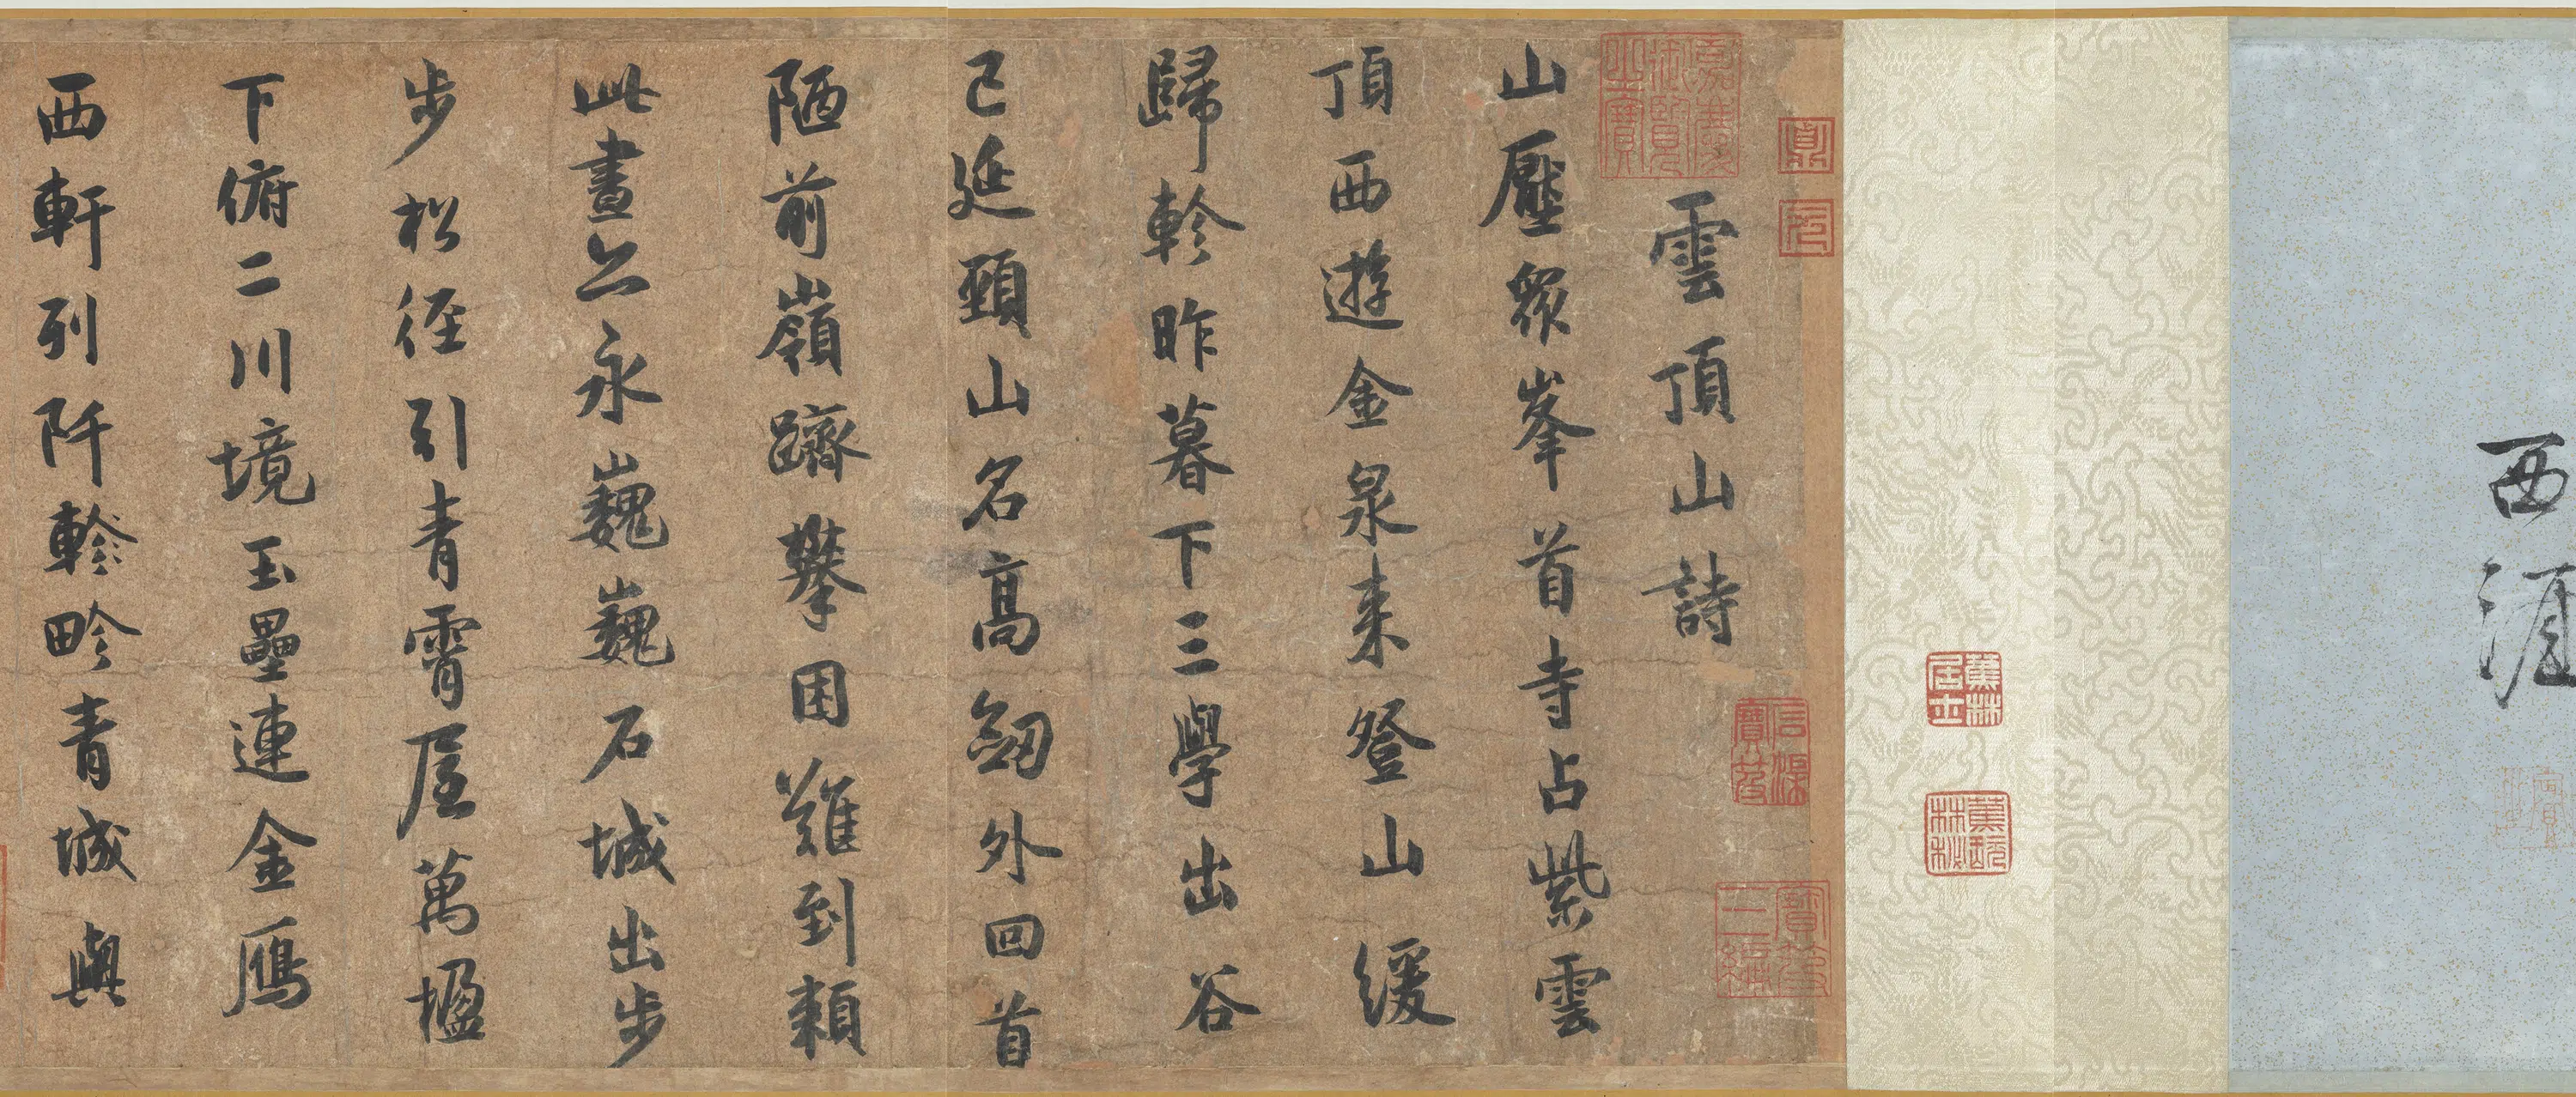 西涯
雲頂山詩
山壓衆峯首寺占紫雲
頂西遊金泉来登山緩
歸軫昨暮下三學出谷
已延頸山名高劒外回首
陋前嶺躋攀困難到頼
此畫亦永巍巍石城出步
步松徑引青霄屋萬楹
下俯二川境玉壘連金鴈
西軒列阡軫畛青城與
嘉慶御覽之寶
蕉林居士
蕉林玩